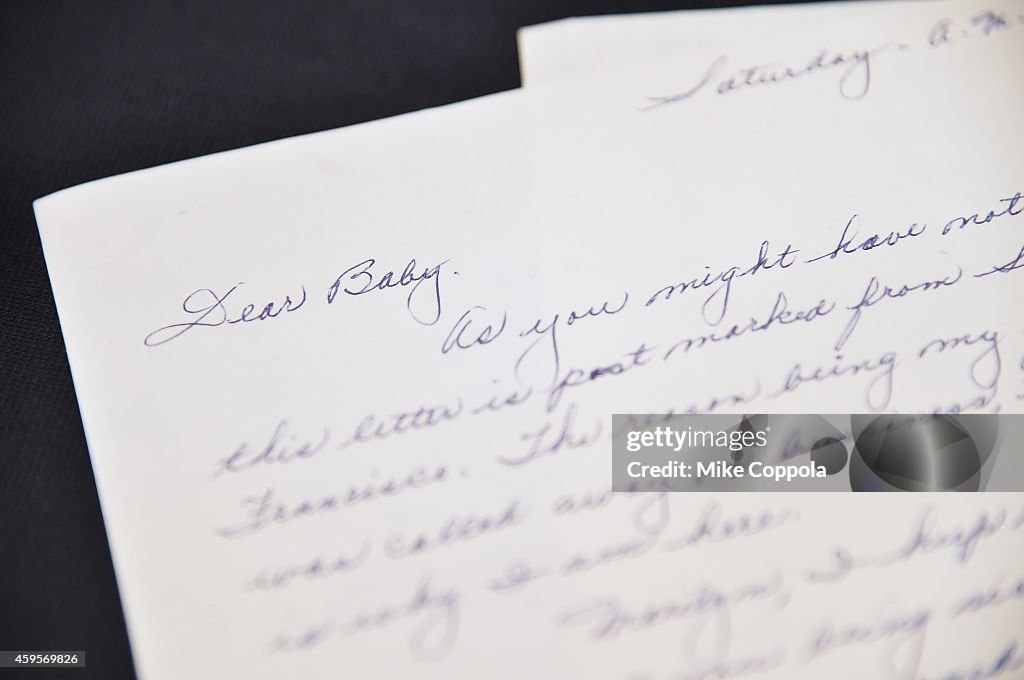 Saturday - A.M.
Dear Baby.
As you might have not
this letter is post marked from S
Francisco. The reason being my
was called away business,
is why I am here.
Marilyn, I keep
being
gettyimages®
Credit: Mike Coppola
459569826